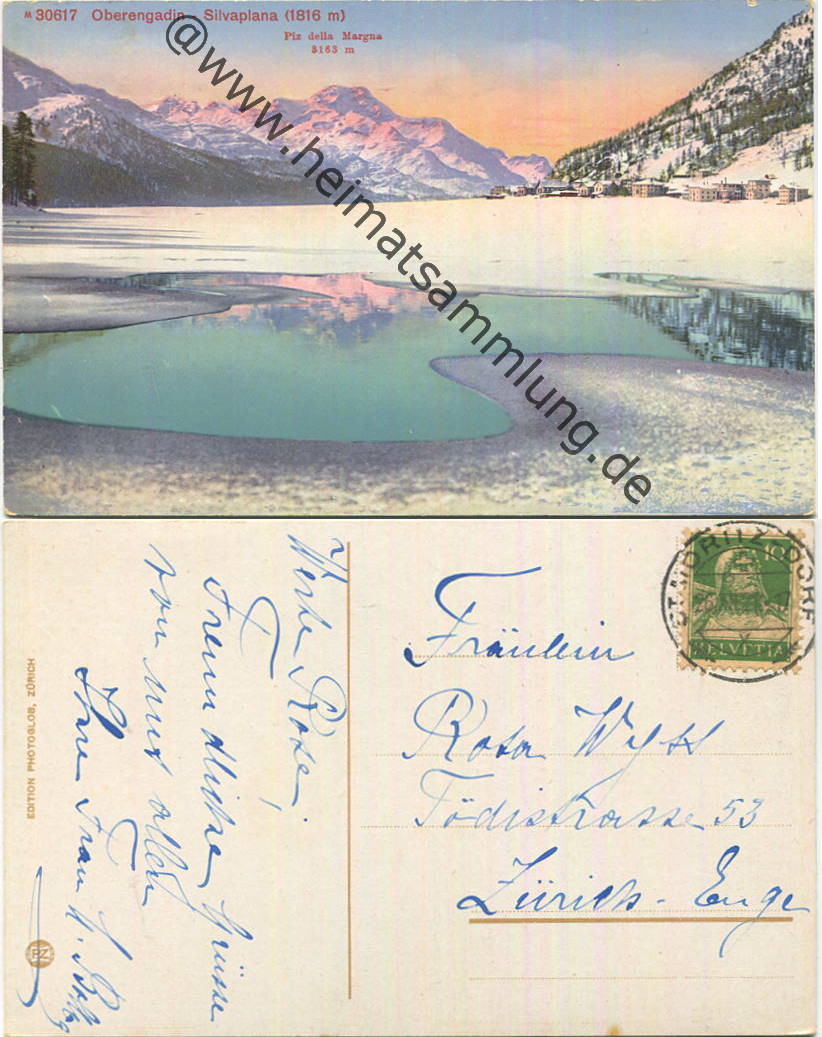 M 30617 Oberengadin - Silvaplana (1816 m)
Piz della Margna
3163 m
@www.heimatsammlung.de
Werte Rosa!
Freundliche Grüsse
von uns allen
Ihre Frau
EDITION PHOTOGLOB, ZÜRICH
PZ
ST. MORITZ DORF
10
HELVETIA
Fräulein
Rosa Wyss
Tödistrasse 53
Zürich - Enge